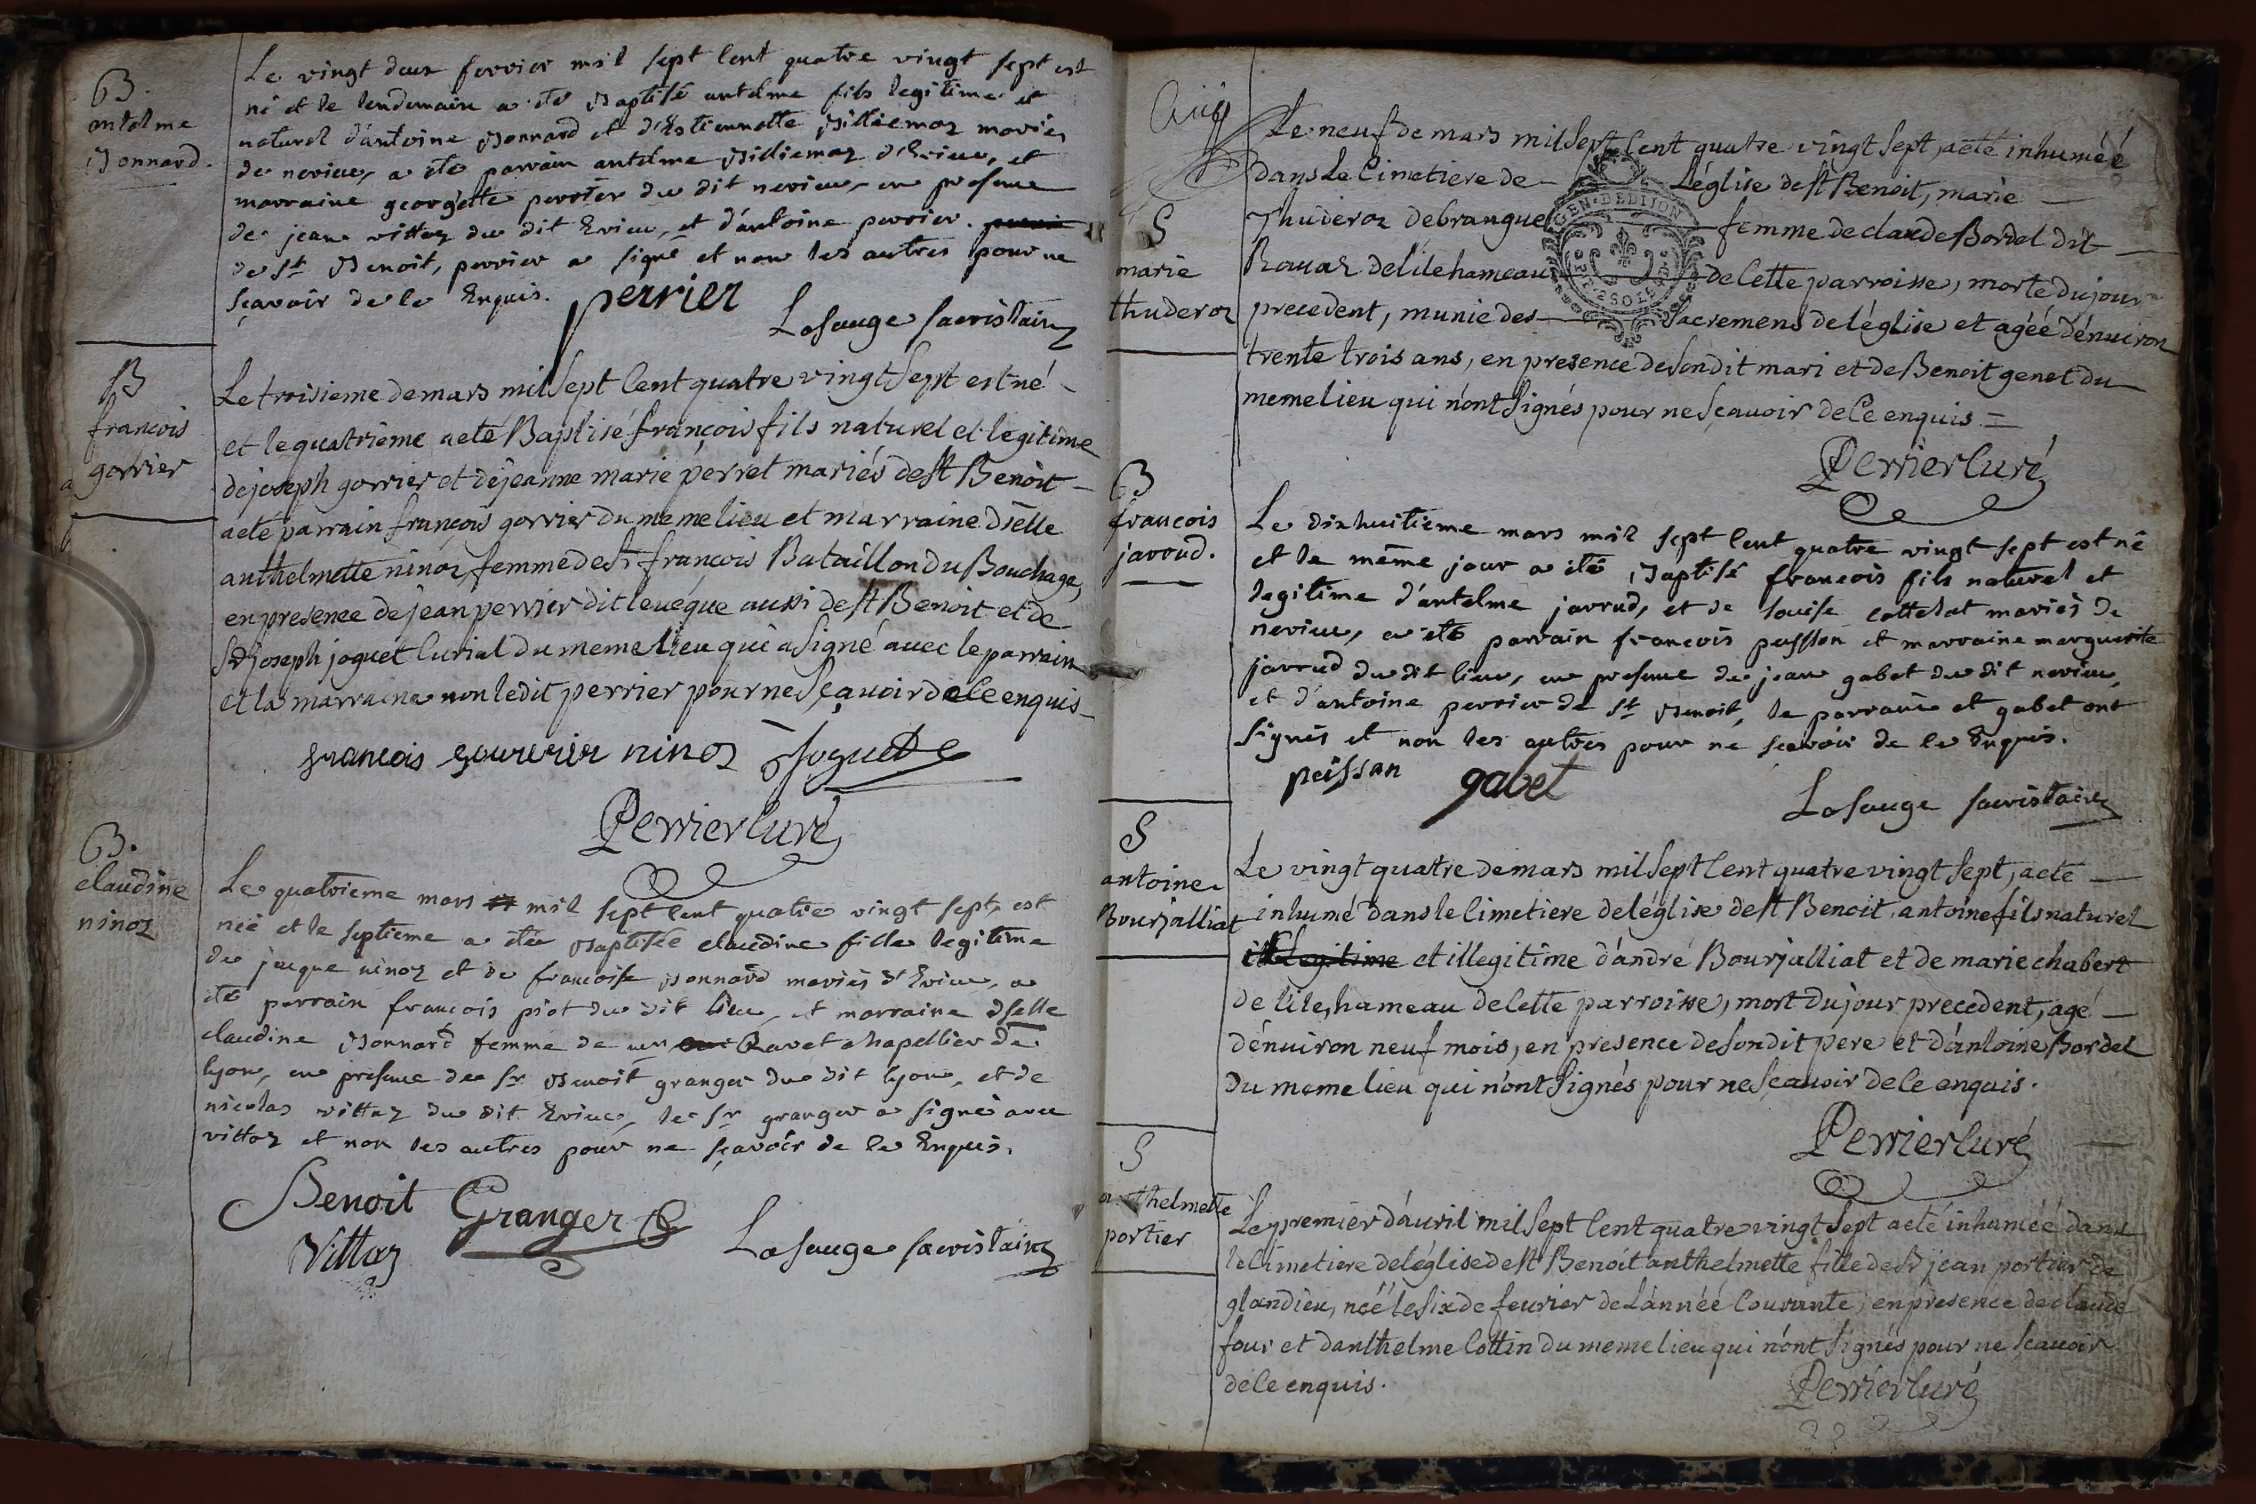 B.
antelme
Bonnard.
Le vingt deux fevrier mil sept cent quatre vingt sept est
né et le lendemain a été Baptisé antelme fils legitime et
naturel d'antoine Bonnard et d'Estiennette Billiemaz mariés
de nevieu, a été parrain antelme Billiemaz d'Evieu, et
marraine georgette perrier du dit nevieu, en presence
de jean vittoz du dit Evieu, et d'antoine perrier
de st Benoit, perrier a signé et non les autres pour ne
sçavoir de ce Enquis. perrier
Lasauge sacristain
B
francois
gorrier
Le troisieme de mars mil sept Cent quatre vingt Sept est né
et le quatrieme a eté Baptisé françois fils naturel et legitime
de joseph gorrier et de jeanne marie perret mariés de st Benoit
a eté parrain françois gorrier du meme lieu et marraine dlelle
anthelmette ninoz, femme de sr françois Bataillon du Bouchage,
en presence de jean perrier dit leveque aussi de st Benoit et de
Sr joseph joguet Curial du meme lieu qui a signé avec le parrain
et la marraine non ledit perrier pour ne sçavoir de Ce enquis
francois gourerier ninoz Joguet
Perrier Curé
B.
claudine
ninoz
Le quatrieme mars mil sept Cent quatre vingt sept, est
née et le septieme a été Baptisée claudine fille legitime
de jacque ninoz et de francoise Bonnard mariés d'Evieu, a
été parrain francois piot du dit lieu, et marraine dselle
claudine Bonnard femme de Ravet chapellier de
lyon, en presence de sr Benoit granger du dit lyon, et de
nicolas vittoz du dit Evieu, le sr granger a signé avec
vittoz et non les autres pour ne sçavoir de ce Enquis.
Benoit Granger
Vittoz
Lasauge sacristain
GEN. DE DIJON
S
marie
thuderoz
Le neuf de mars mil Sept Cent quatre vingt Sept, a eté inhumeé
dans Le Cimetiere de L'église de st Benoit, marie
Thuderoz de brangue femme de claude Bordel dit
Ravaz de l'ile hameau de Cette parroisse, morte du jour
precedent, munie des Sacremens de l'église et agéé d'énuiron
trente trois ans, en presence de son dit mari et de Benoit genet du
meme lieu qui n'ont Signés pour ne Sçauoir de Ce enquis =
Perrier Curé
B
francois
javoud.
Le dixhuitieme mars mil sept Cent quatre vingt sept est né
et le même jour a été Baptisé francois fils naturel et
legitime d'antelme javrud, et de louise cottelat mariés de
nevieu, a été parrain francois peysson et marraine marguerite
javrud du dit lieu, en presence de jean gabet du dit nevieu,
et d'antoine perrier de st Benoit, le parrain et gabet ont
signés et non les autres pour ne scavoir de ce Enquis.
peissan gabet
Lasauge sacristain
S
antoine
Bourjalliat
Le vingt quatre de mars mil Sept Cent quatre vingt Sept, a ete
inhumé dans le Cimetiere de l'église de st Benoit, antoine fils naturel
illegitime et illegitime d'andré Bourjalliat et de marie chabert
de l'ile, hameau de Cette parroisse, mort du jour precedent, agé
d'énuiron neuf mois, en presence de son dit pere et d'antoine Bordel
du meme lieu qui n'ont Signés pour ne Sçauoir de Ce enquis.
Perrier Curé
S
anthelmette
portier
Le premier d'auril mil Sept Cent quatre vingt Sept a eté inhumeé dans
le Cimetiere de l'église de st Benoit anthelmette fille de Sr jean portier de
glandieu, néé le six de feurier de L'année Courante, en presence de claude
four et danthelme Cottin du meme lieu qui n'ont Signés pour ne Scauoir
de Ce enquis.
Perrier Curé